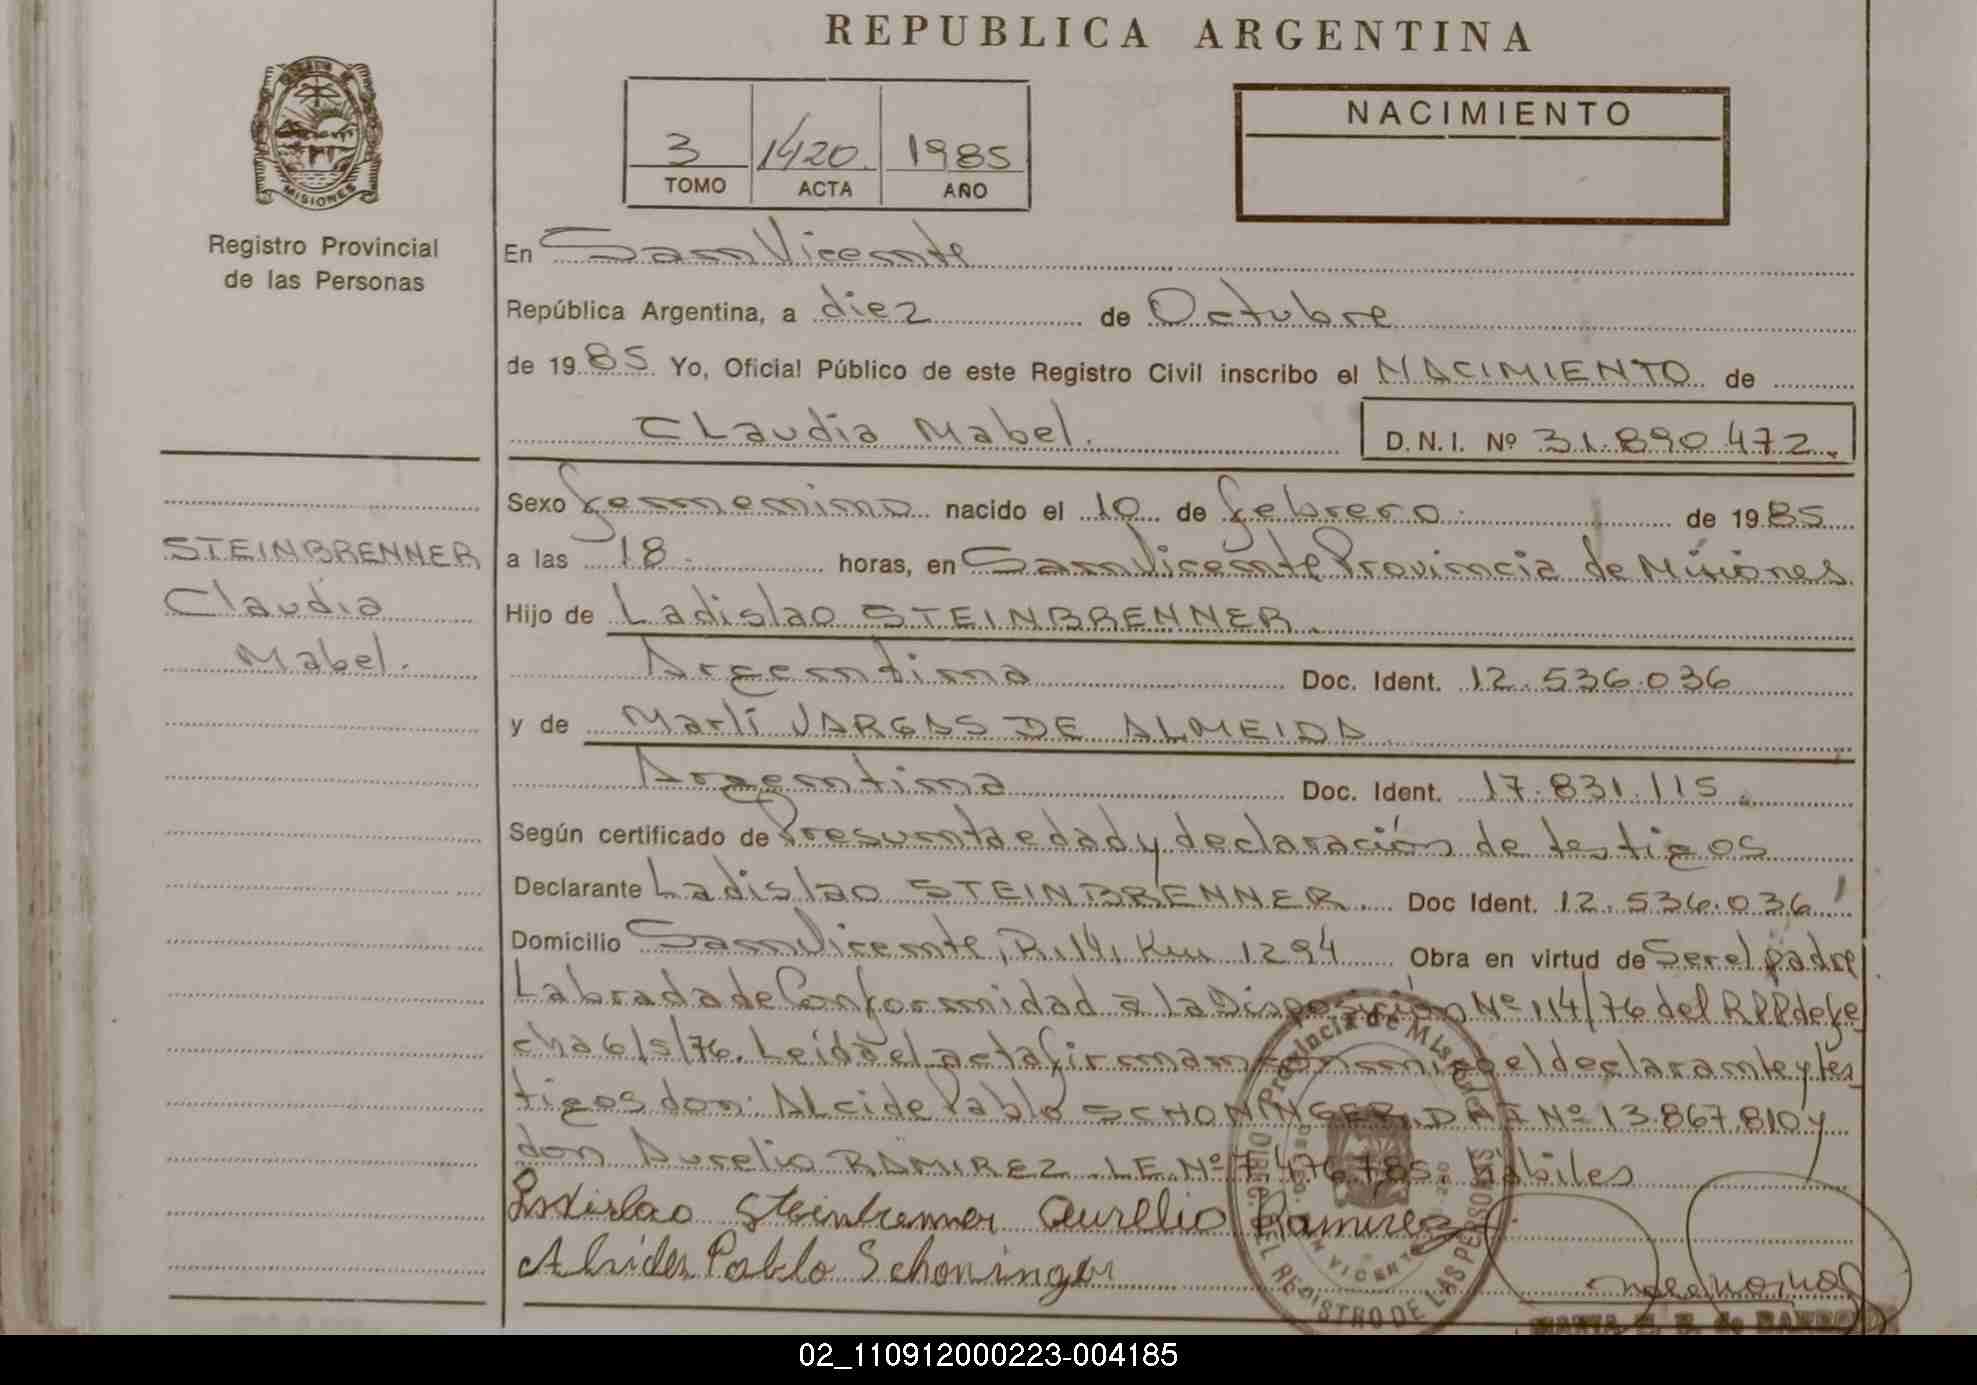 REPUBLICA ARGENTINA
MISIONES
Registro Provincial
de las Personas
3 1420 1985
TOMO ACTA AÑO
NACIMIENTO
En San Vicente
República Argentina, a diez de Octubre
de 1985 Yo, Oficial Público de este Registro Civil inscribo el NACIMIENTO de
Claudia Mabel. D.N.I. Nº 31.890.472.
Sexo femenino nacido el 10 de febrero de 1985
STEINBRENNER
Claudia
Mabel.
a las 18 horas, en San Vicente Provincia de Misiones
Hijo de Ladislao STEINBRENNER.
Argentina Doc. Ident. 12.536.036
y de Marlí VARGAS DE ALMEIDA
Argentina Doc. Ident. 17.831.115.
Según certificado de Presunta edad y declaración de testigos
Declarante Ladislao STEINBRENNER. Doc Ident. 12.536.036
Domicilio San Vicente, R.14, Km 1294 Obra en virtud de Ser el padre
Labrada de Conformidad a la Disposición Nº 114/76 del R.P.P de fe
cha 6/5/76. Leída el acta firman conmigo el declarante y tes
tigos don: Alcide Pablo SCHONINGER D.N.I Nº 13.867.810 y
don Aurelio RAMIREZ. L.E. Nº 7.476.785 habiles
Ladislao Steinbrenner Aurelio Ramirez
Alcides Pablo Schoninger
Provincia de Misiones
DIREC. DEL REGISTRO DE LAS PERSONAS
02_110912000223-004185